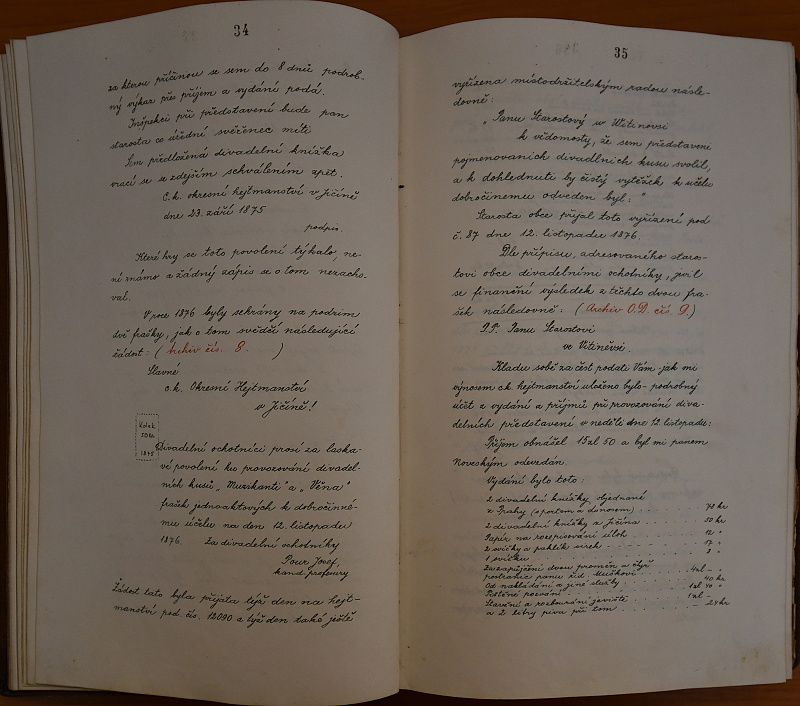 34
za kterou příčinou se sem do 8 dnů podrob-
ný výkaz přes příjem a vydání podá.
Inšpekci při představení bude pan
starosta co úřední svěřenec míti
Sem předložená divadelní knížka
vrací se se zdejším schválením zpět.
C. k. okresní hejtmanství v Jičíně
dne 23. září 1875
podpis.
Které hry se toto povolení týkalo, ne-
ní známo a žádný zápis se o tom nezacho-
val.
V roce 1876 byly sehrány na podzim
dvě frašky, jak o tom svědčí následující
žádost: (Archiv čís. 8. )
Slavné
c. k. Okresní Hejtmanství
v Jičíně!
Kolek
50 kr.
1875
Divadelní ochotníci prosí za laska-
vé povolení ku provozování divadel-
ních kusů „Muzikanti" a „Věna"
frašek jednoaktových k dobročinné-
mu účelu na den 12. listopadu
1876. Za divadelní ochotníky
Pour Josef,
kand. profesury
Žádost tato byla přijata týž den na hejt-
manství pod čís. 12090 a týž den také ještě
35
vyřízena místodržitelským radou násle-
dovně:
„Panu Starostový w Witinovsi
k vědomosty, že sem představení
pojmenovaních divadlních kusu svolil,
a k dohlednutí by čistý vytěžek k účelu
dobročinemu odveden byl:"
Starosta obce přijal toto vyřízení pod
č. 87 dne 12. listopadu 1876.
Dle přípisu, adresovaného staros-
tovi obce divadelními ochotníky, jevil
se finanční výsledek z těchto dvou fra-
šek následovně: (Archiv O.D. čís 9.)
P.T. Panu Starostovi
ve Vitiněvsi.
Kladu sobě za čest podati Vám - jak mi
výnosem c.k. hejtmanství uloženo bylo - podrobný
účet z vydání a příjmů při provozování diva-
delních představení v neděli dne 12. listopadu:
Příjem obnášel 15 zl 50 a byl mi panem
Noveským odevzdán.
Vydání bylo toto:
2 divadelní knížky objednané
z Prahy (s portem a donosem) . . . 78 kr
2 divadelní knížky z Jičína . . . 50 kr
Papír na rozepisování úloh . . . 12 "
2 svíčky a paklík sirek . . . 17 "
1 svíčku . . . 8 "
Za zapůjčení dvou proměn a čtyř
postranic panu řid. Muškovi . . . 4 zl - "
Od nakládání a jiné služby . . . 40 kr
Tištěné pozvání . . . 1 zl 40 "
Stavění a rozbourání jeviště . . . 1 zl -
a 2 litry piva při tom . . . - 24 kr